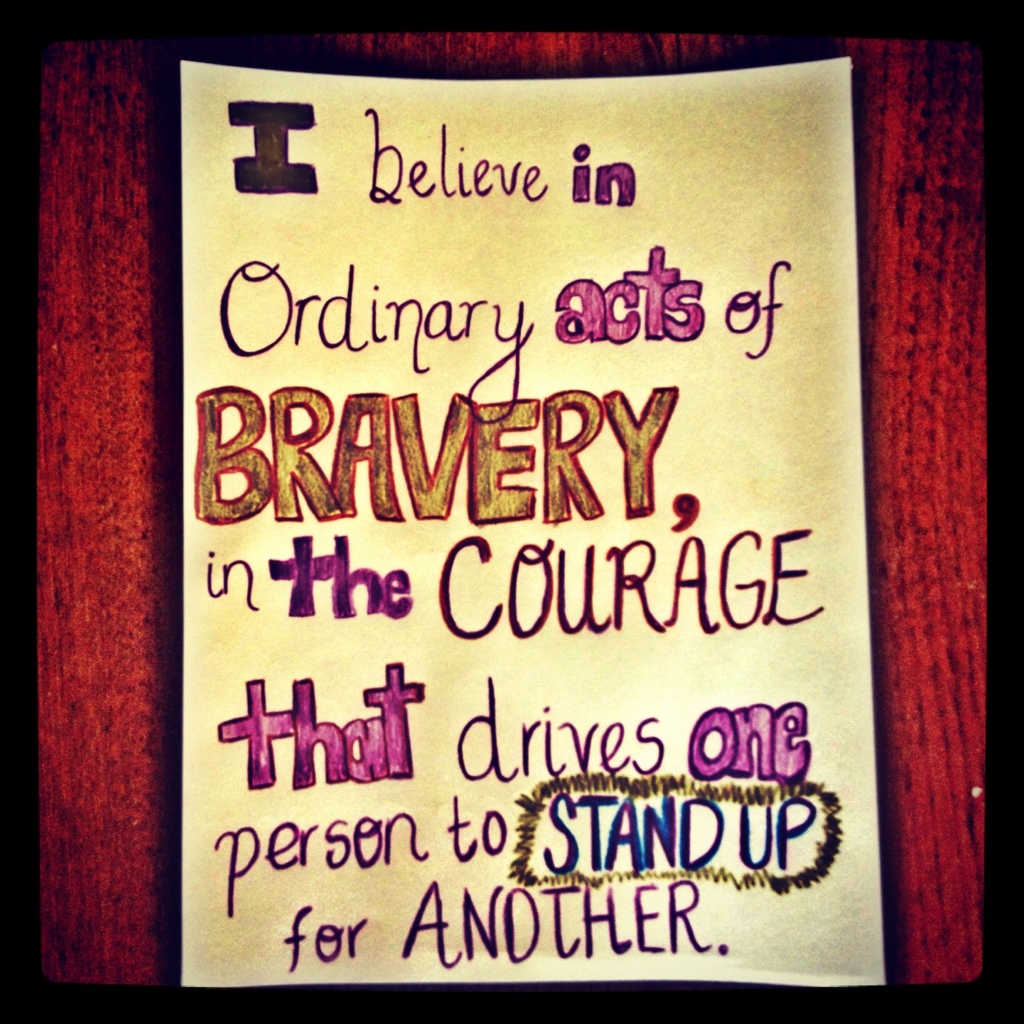 I believe in
Ordinary acts of
BRAVERY,
in the COURAGE
that drives one
person to STAND UP
for ANOTHER.